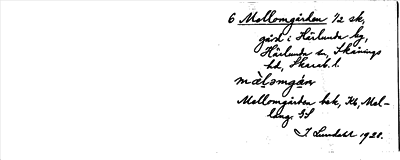 6 Mellomgården 1/2 sk,
gård i Härlunda by,
Härlunda sn, Skånings
hd, Skarab. l.
mä̀lomgá̄ɳ
Mellomgården bsk, Kb, Mel-
lomg: GS
I Lundahl 1928.